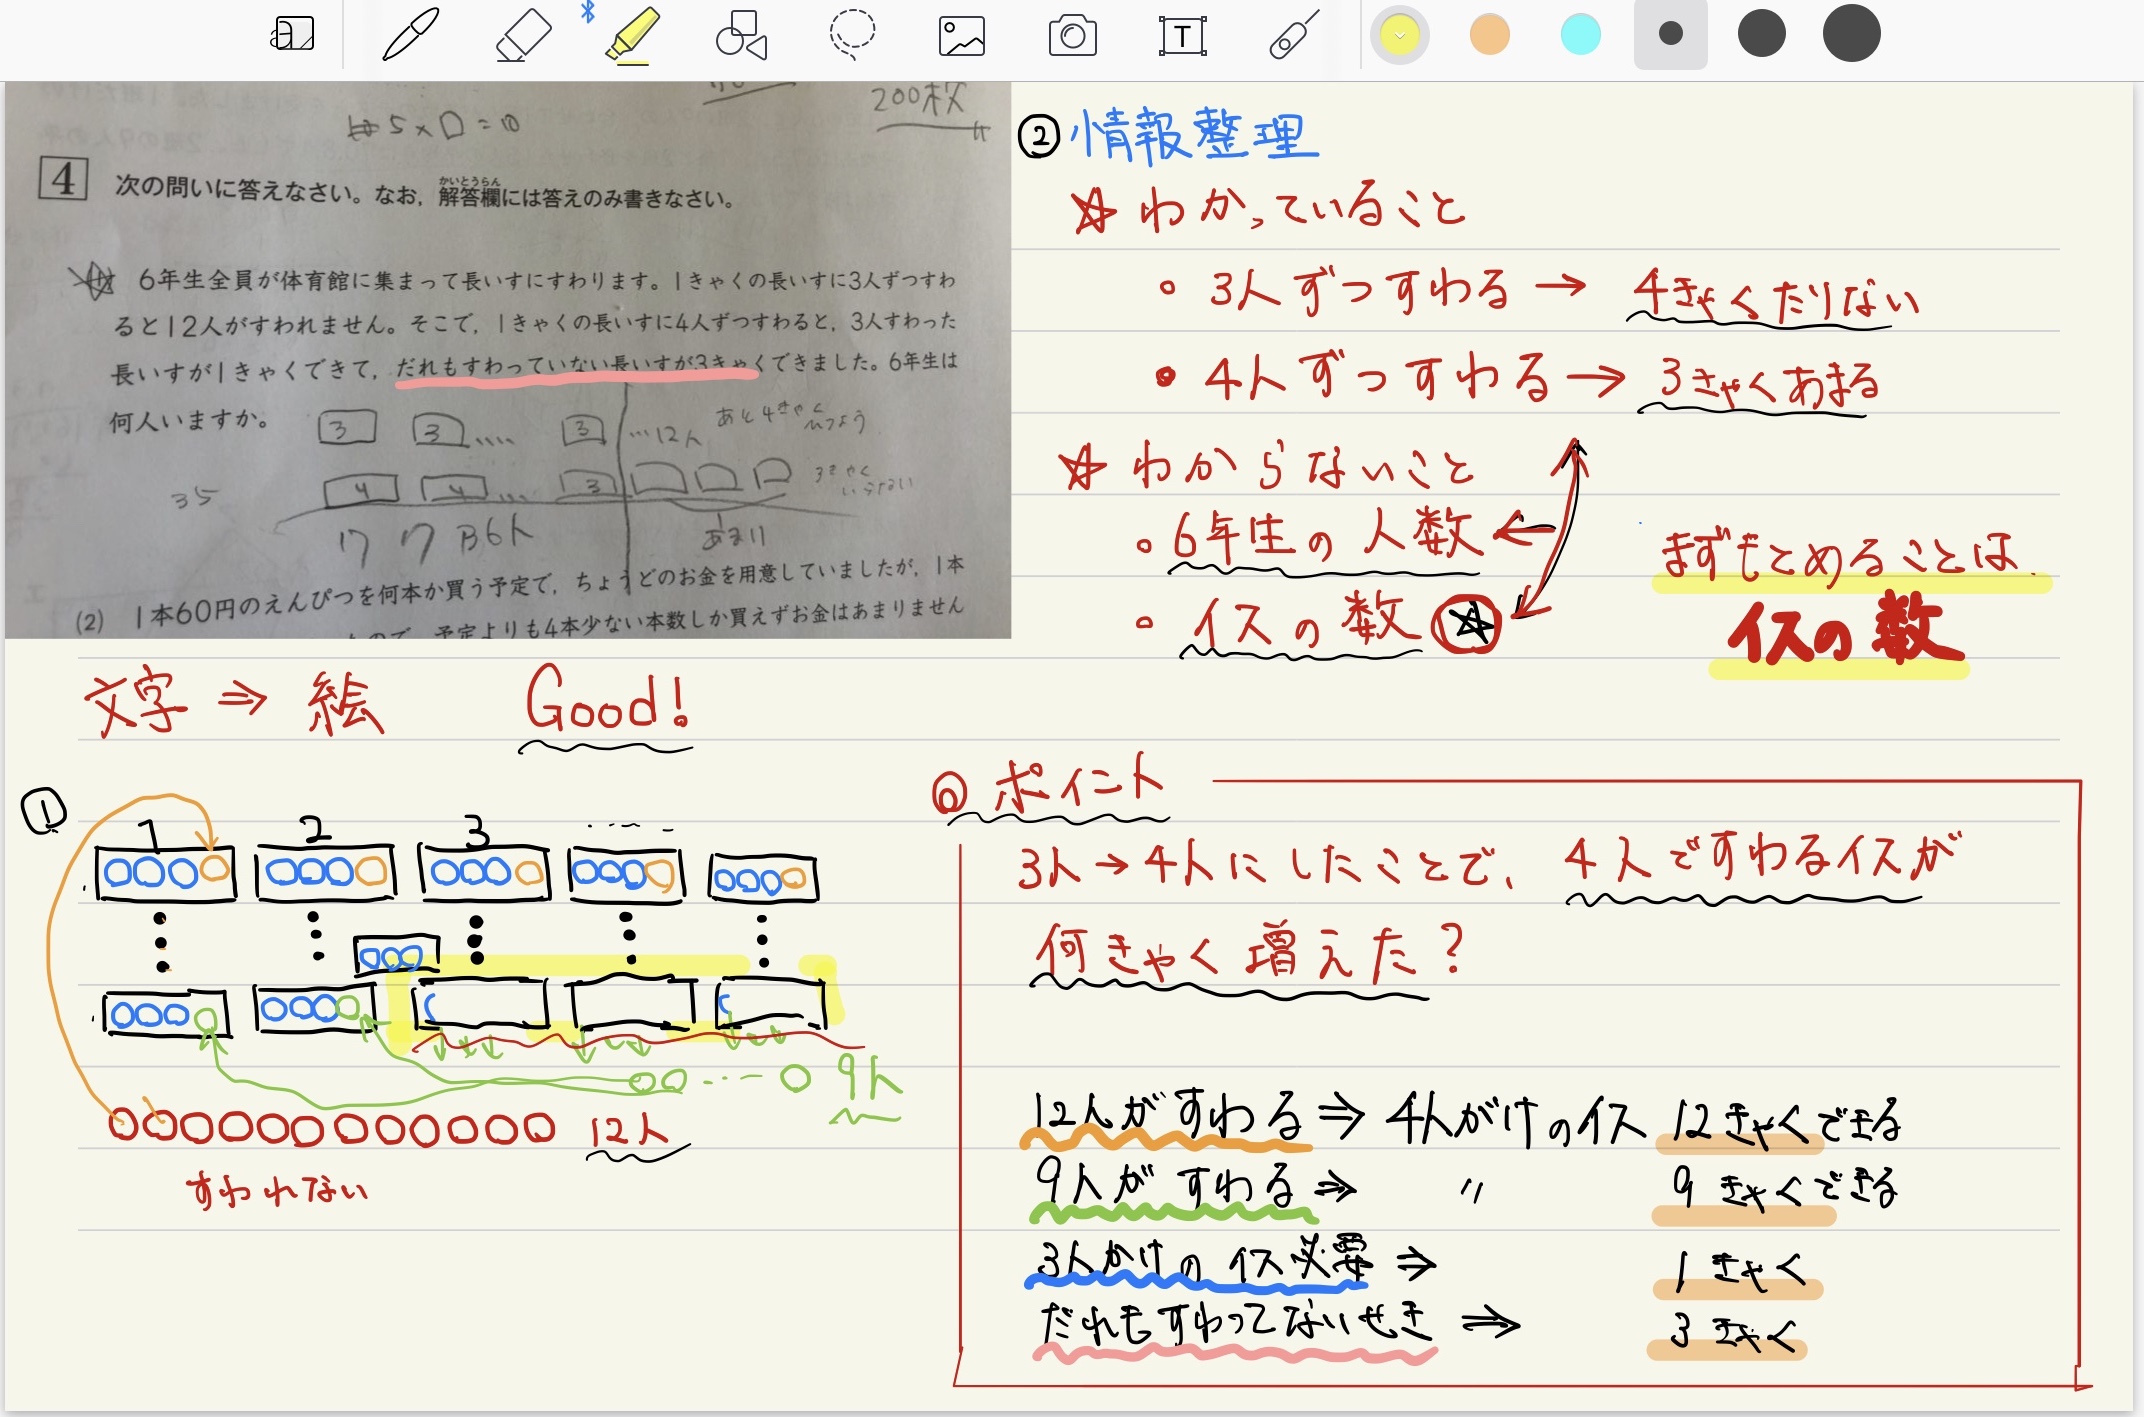 200枚
5×□=10
4 次の問いに答えなさい。なお，解答欄には答えのみ書きなさい。
かいとうらん
6年生全員が体育館に集まって長いすにすわります。1きゃくの長いすに3人ずつすわ
ると12人がすわれません。そこで，1きゃくの長いすに4人ずつすわると，3人すわった
長いすが1きゃくできて，だれもすわっていない長いすが3きゃくできました。6年生は
何人いますか。
3 3 .... 3 …12人 あと4きゃく
ひつよう
35 4 4 ... 3 3きゃく
いらない
あまり
(2) 1本60円のえんぴつを何本か買う予定で，ちょうどのお金を用意していましたが，1本
予定よりも4本少ない本数しか買えずお金はあまりません
② 情報整理
☆ わかっていること
○ 3人ずつすわる → 4きゃくたりない
● 4人ずつすわる → 3きゃくあまる
☆ わからないこと
○ 6年生の人数 ←
○ イスの数 ☆
まずもとめることは
イスの数
文字 ⇒ 絵 Good!
①
1 2 3 ....
9人
12人
すわれない
◎ ポイント
3人→4人にしたことで、4人ですわるイスが
何きゃく増えた？
12人がすわる ⇒ 4人がけのイス 12きゃくできる
9人がすわる ⇒ 〃 9きゃくできる
3人かけのイス必要 ⇒ 1きゃく
だれもすわってないせき ⇒ 3きゃく